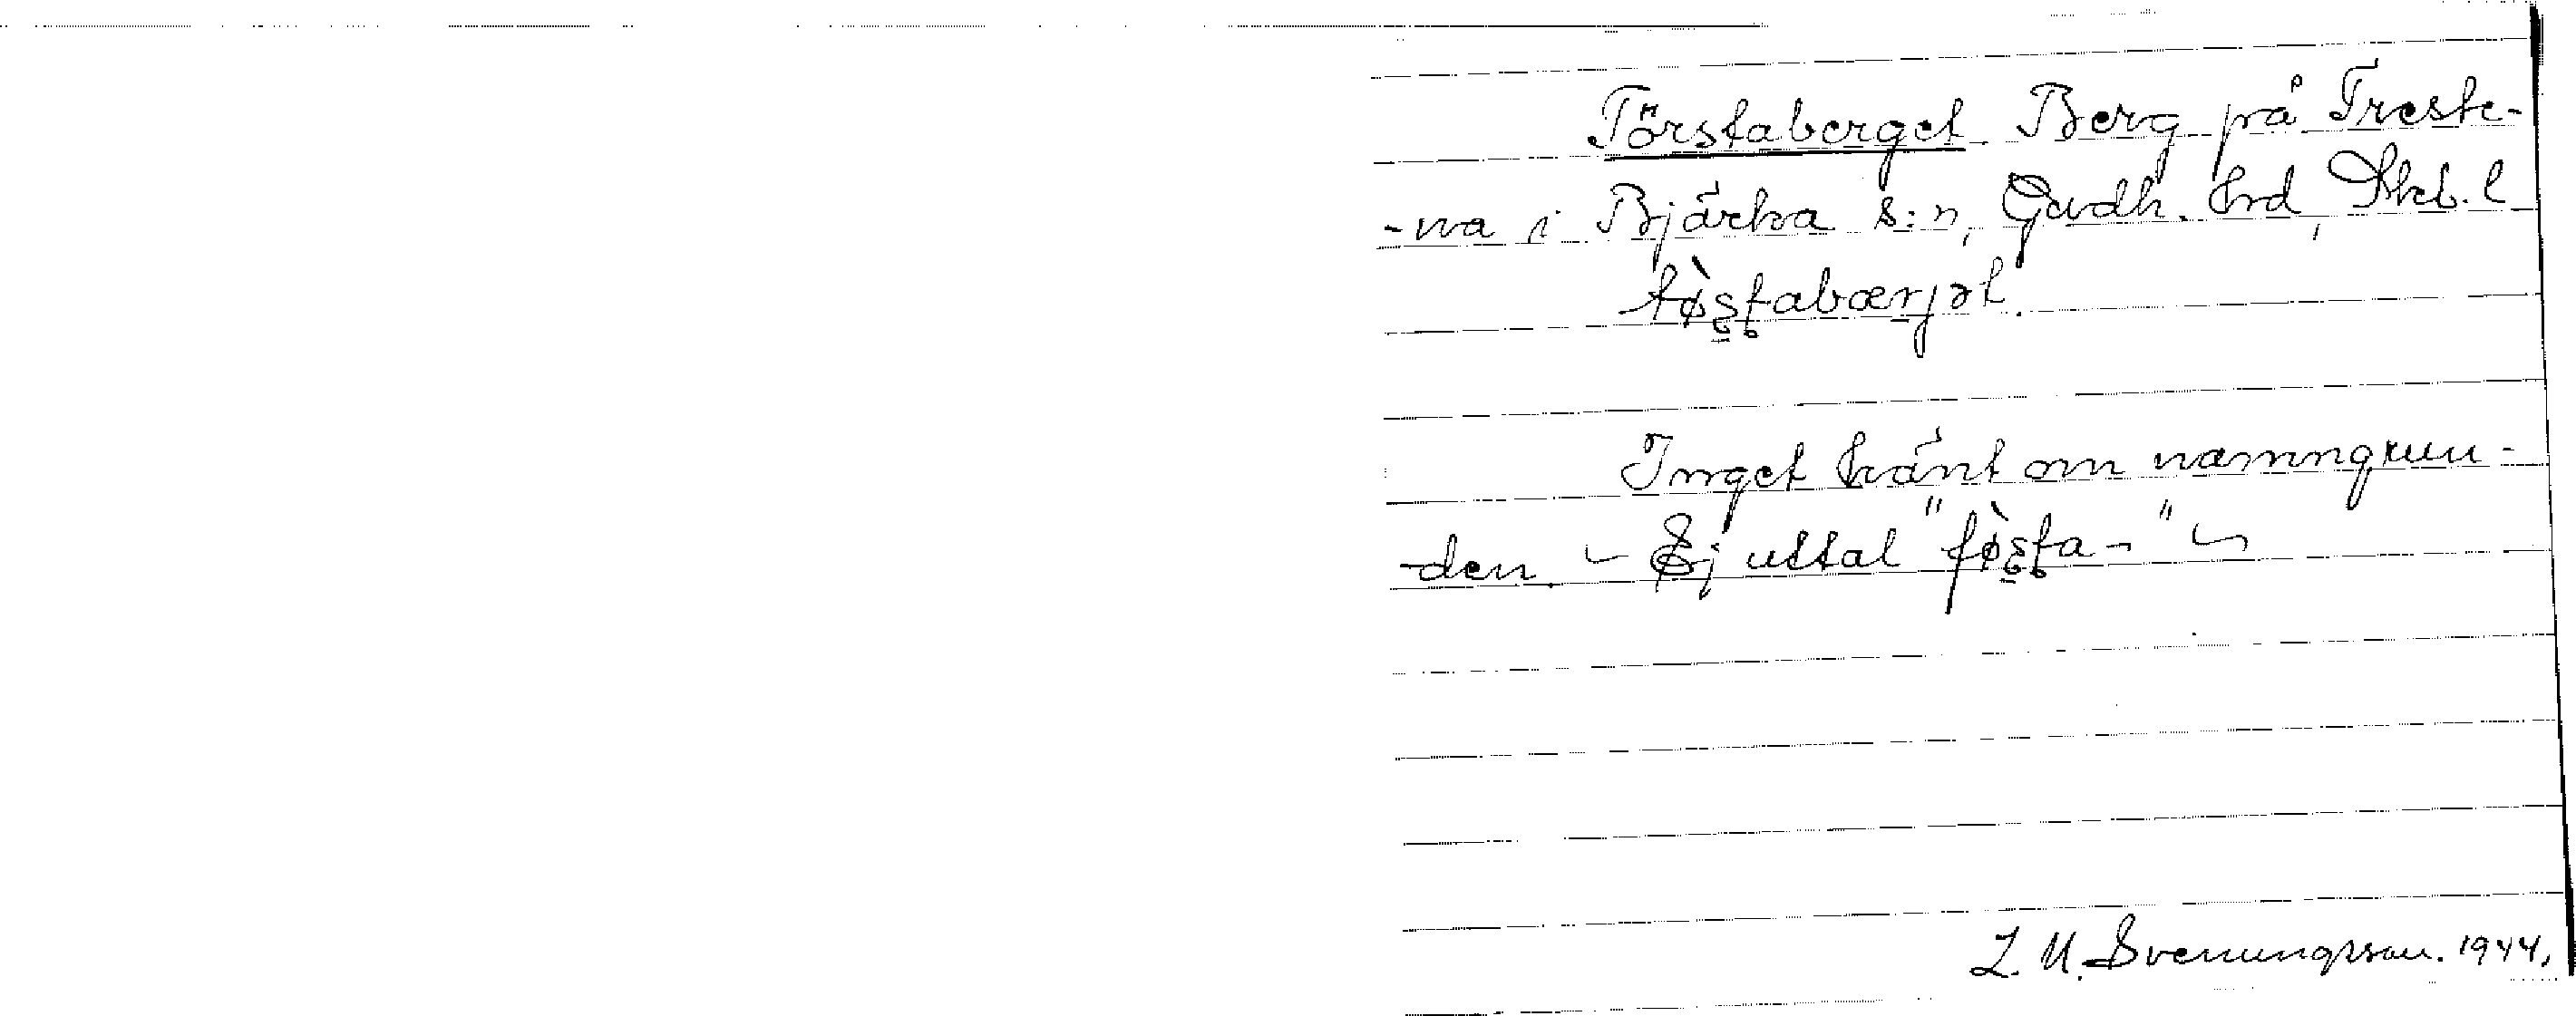 Törstaberget Berg på Treste-
-na i Bjärka s:n, Gudh. hrd, Skb. l
tø̀s̱tabærjət.
Inget känt om namngrun-
-den. – Ej uttal "fø̀s̱ta-" –
L. M. Svenungsson. 1944.